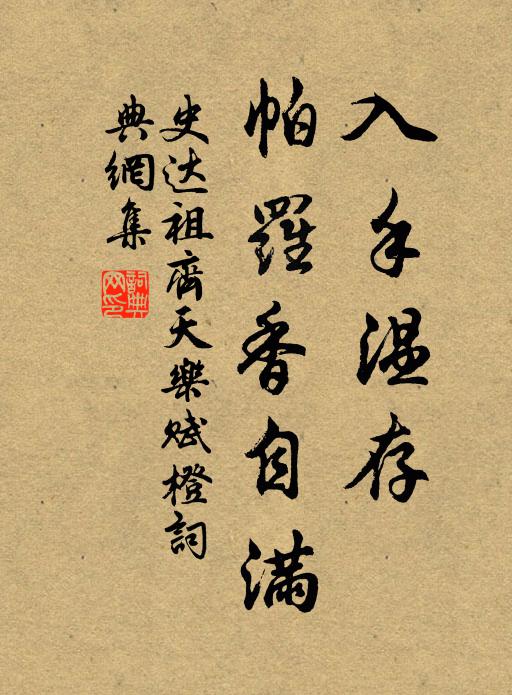 入手温存
帕羅香自滿
史达祖齊天樂賦橙詞
典網集
詞典网印